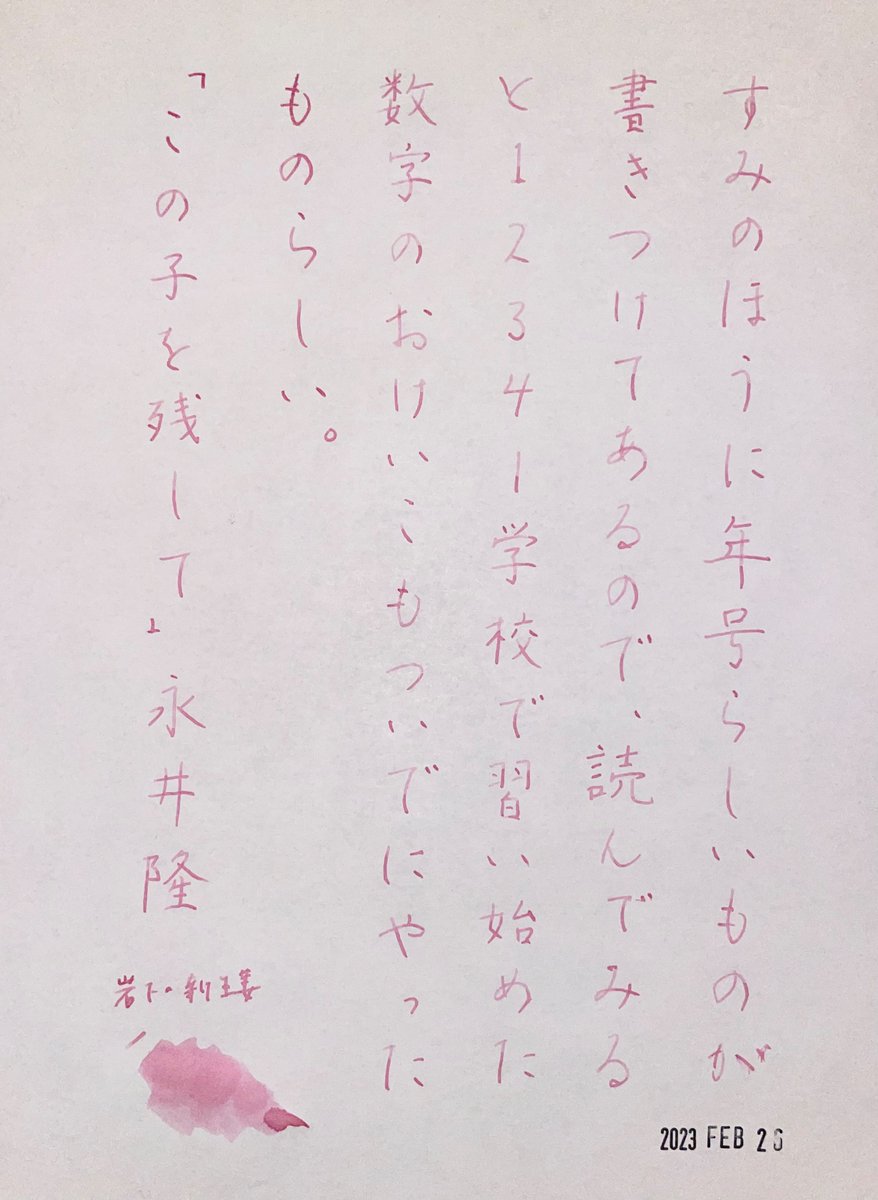 すみのほうに年号らしいものが
書きつけてあるので、読んでみる
と12341学校で習い始めた
数字のおけいこもついでにやった
ものらしい。
「この子を残して」永井隆
岩下の新生姜
2023 FEB 26